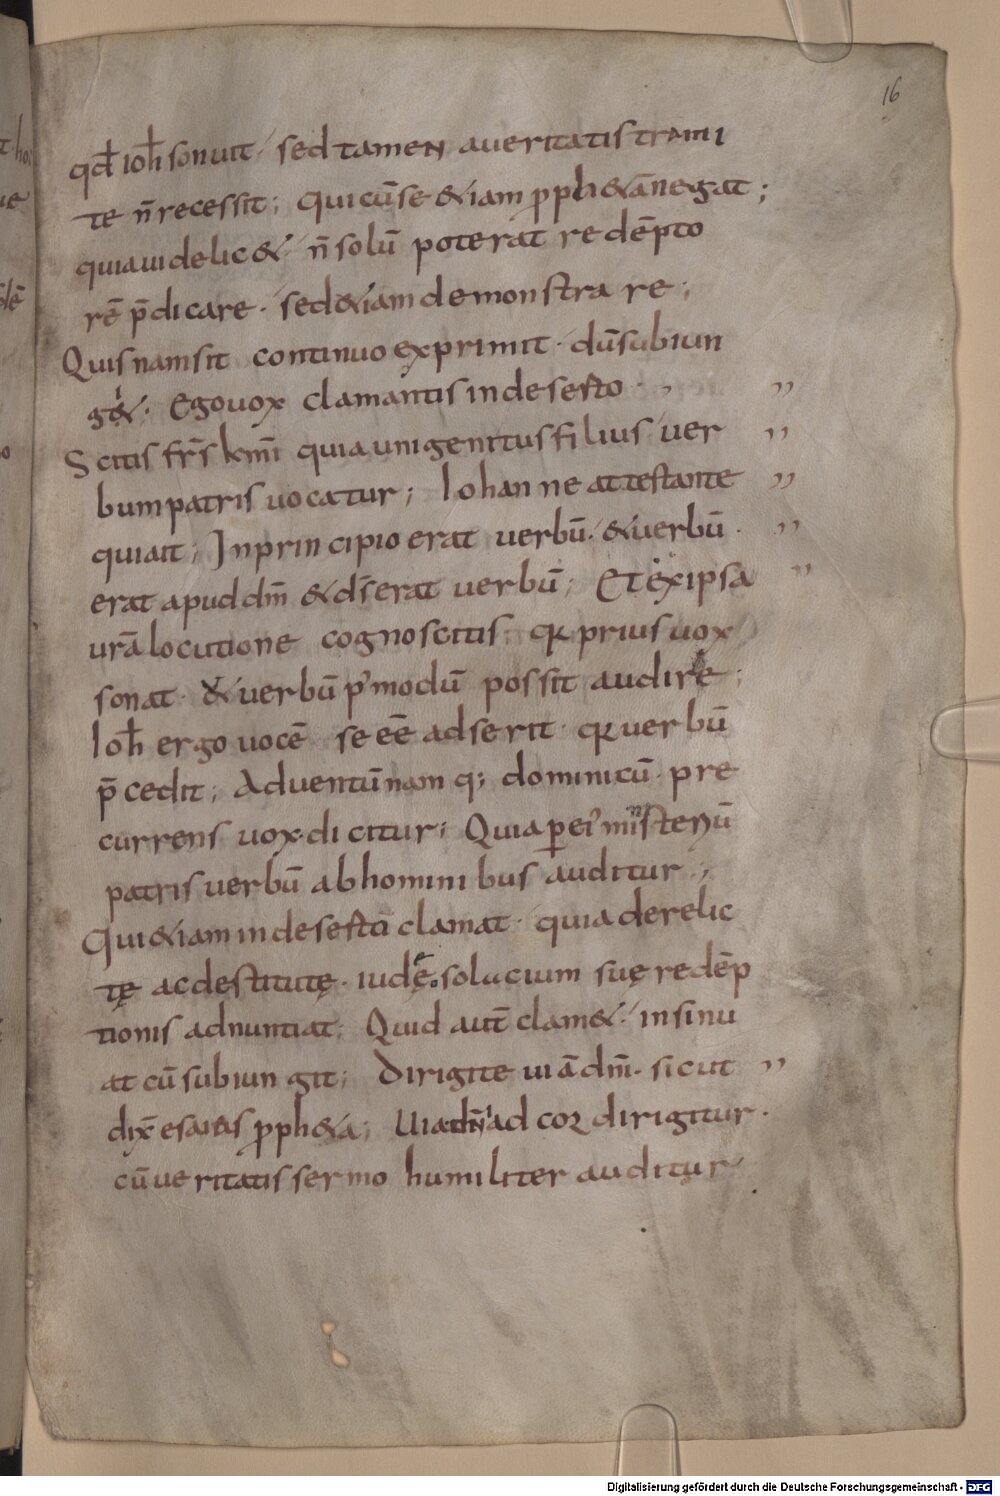 16
qd̄ ioh̄ sonuit; sed tamen a ueritatis trami
te n̄ recessit; Qui cū se &iam ꝓph&ā negat;
quia uidelic& n̄ solū poterat redēpto
rē p̄dicare. sed &iam demonstrare;
Quis nam sit continuo exprimit. dū subiun
git&. Ego uox clamantis in deserto. ,,
Scitis fr̄s km̄i quia unigenitus filius uer ,,
bum patris uocatur; Iohanne attestante ,,
qui ait; In principio erat uerbū. & uerbū. ,,
erat apud dm̄ & dſ̄ erat uerbū; Et ex ipsa ,,
urā locutione cognoscitis. qꝛ prius uox
sonat. & uerbū p' modū possit audire;
Ioh̄ ergo uocē se eē adserit. qꝛ uerbū
p̄cedit; Aduentū namq; dominicū. pre
currens uox dicitur; Quia ꝑ ei' ministeriū
patris uerbū ab hominibus auditur;
Qui &iam in deserto clamat. quia derelic
tę ac destitutę. iudęę solacium suę redēp
tionis adnuntiat; Quid aut̄ clam&. insinu
at cū subiungit; Dirigite uiā dm̄. sicut ,,
dix̄ esaias ꝓph&a; Uia dn̄i ad cor dirigitur.
cū ueritatis sermo humiliter auditur
Digitalisierung gefördert durch die Deutsche Forschungsgemeinschaft - DFG